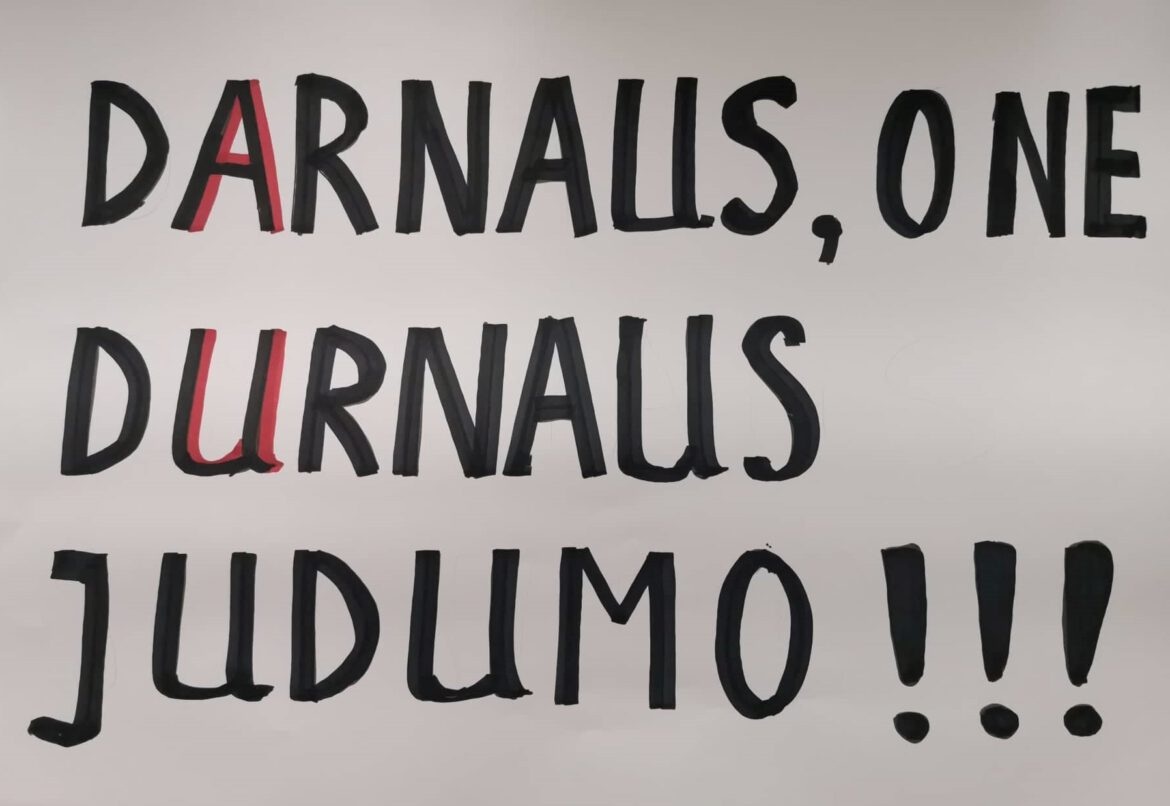 DARNAUS, O NE
DURNAUS
JUDUMO!!!